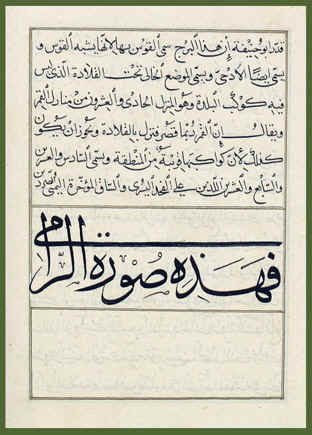 أبو حنيفة أن هذا البرج سمي القوس بها لأنها يشبه القوس و
يسمى أيضا الأدحي ويسمى الموضع الخالي تحت القلادة الذي ليس
فيه كوكب البلدة وهو المنزل الحادي والعشرون من منازل القمر
ويقال إن القمر ربما قصر فنزل بالقلادة ويجوز أن يكون
كذلك لأن كواكبها قريبة من المنطقة ويسمى السادس والعشرين
والسابع والعشرين اللذين على الفخذ اليسرى والساق المؤخرة اليمنى
فهذه صورة الرامي